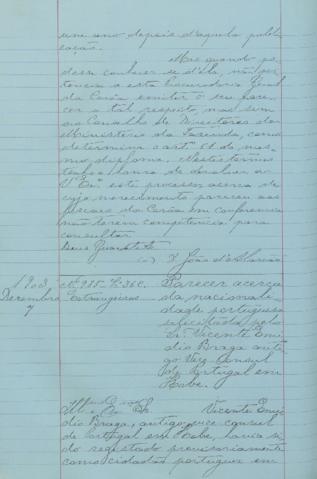 um anno depois daquella publi-
cação.
Mas quando po-
desse conhecer-se d'ella, não per-
tencia a esta Procuradoria Geral
da Corôa emittir o seu pare-
cer a tal respeito, mas sim
ao Conselho de Directores do
Ministerio da Fazenda, como
determina o artº 61 do mes-
mo diploma. Nestes termos
tenho a honra de devolver a
V. Exª este processo acerca de
cujo merecimento parecem aos
fiscaes da Corôa em conferencia
não terem competencia para
consultar.
Deus Guarde
João d'Alarcão
1903
Dezembro
7
Nº 285
Estrangeiros
Parecer acerca
da nacionali-
dade portugueza
solicitada pelo
Sr. Vicente Emi-
dio Braga anti-
go Vice Consul
de Portugal em
Kobe.
Illmo e Exmo Sr. Vicente Emi-
dio Braga, antigo vice consul
de Portugal em Kobe, havia si-
do registado provisoriamente
como cidadão portuguez em